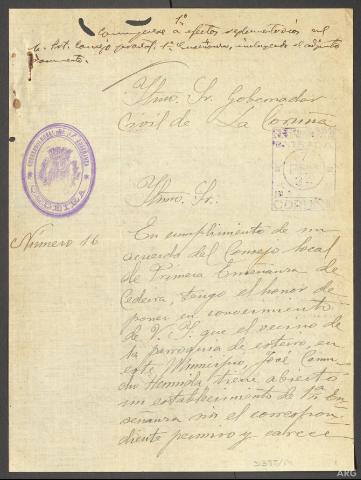 1º
Comuníquese a efectos reglamentarios en el
Consejo provincial 1ª Enseñanza, incluyendo el adjunto
documento.
Iltmo. Sr. Gobernador
Civil de La Coruña
Iltmo. Sr:
CEDEIRA
CORUÑA
Número 16
En cumplimiento de un
acuerdo del Consejo local
de Primera Enseñanza de
Cedeira, tengo el honor de
poner en conocimiento
de V. I. que el vecino de
la parroquia de Esteiro, en
este Municipio, José
Hermida, tiene abierto
un establecimiento de 1ª En
señanza sin el correspon
diente permiso y carece
ARG